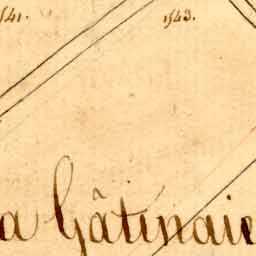 541. 1543.
a Gâtinaie